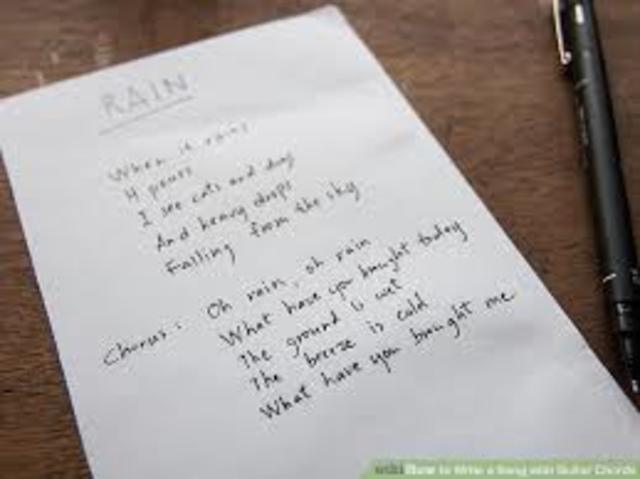 RAIN
When it rains
It pours
I see cats and dogs
And heavy drops
Falling from the sky
Chorus: Oh rain, oh rain
What have you brought today
The ground is wet
The breeze is cold
What have you brought me
wikiHow to Write a Song with Guitar Chords